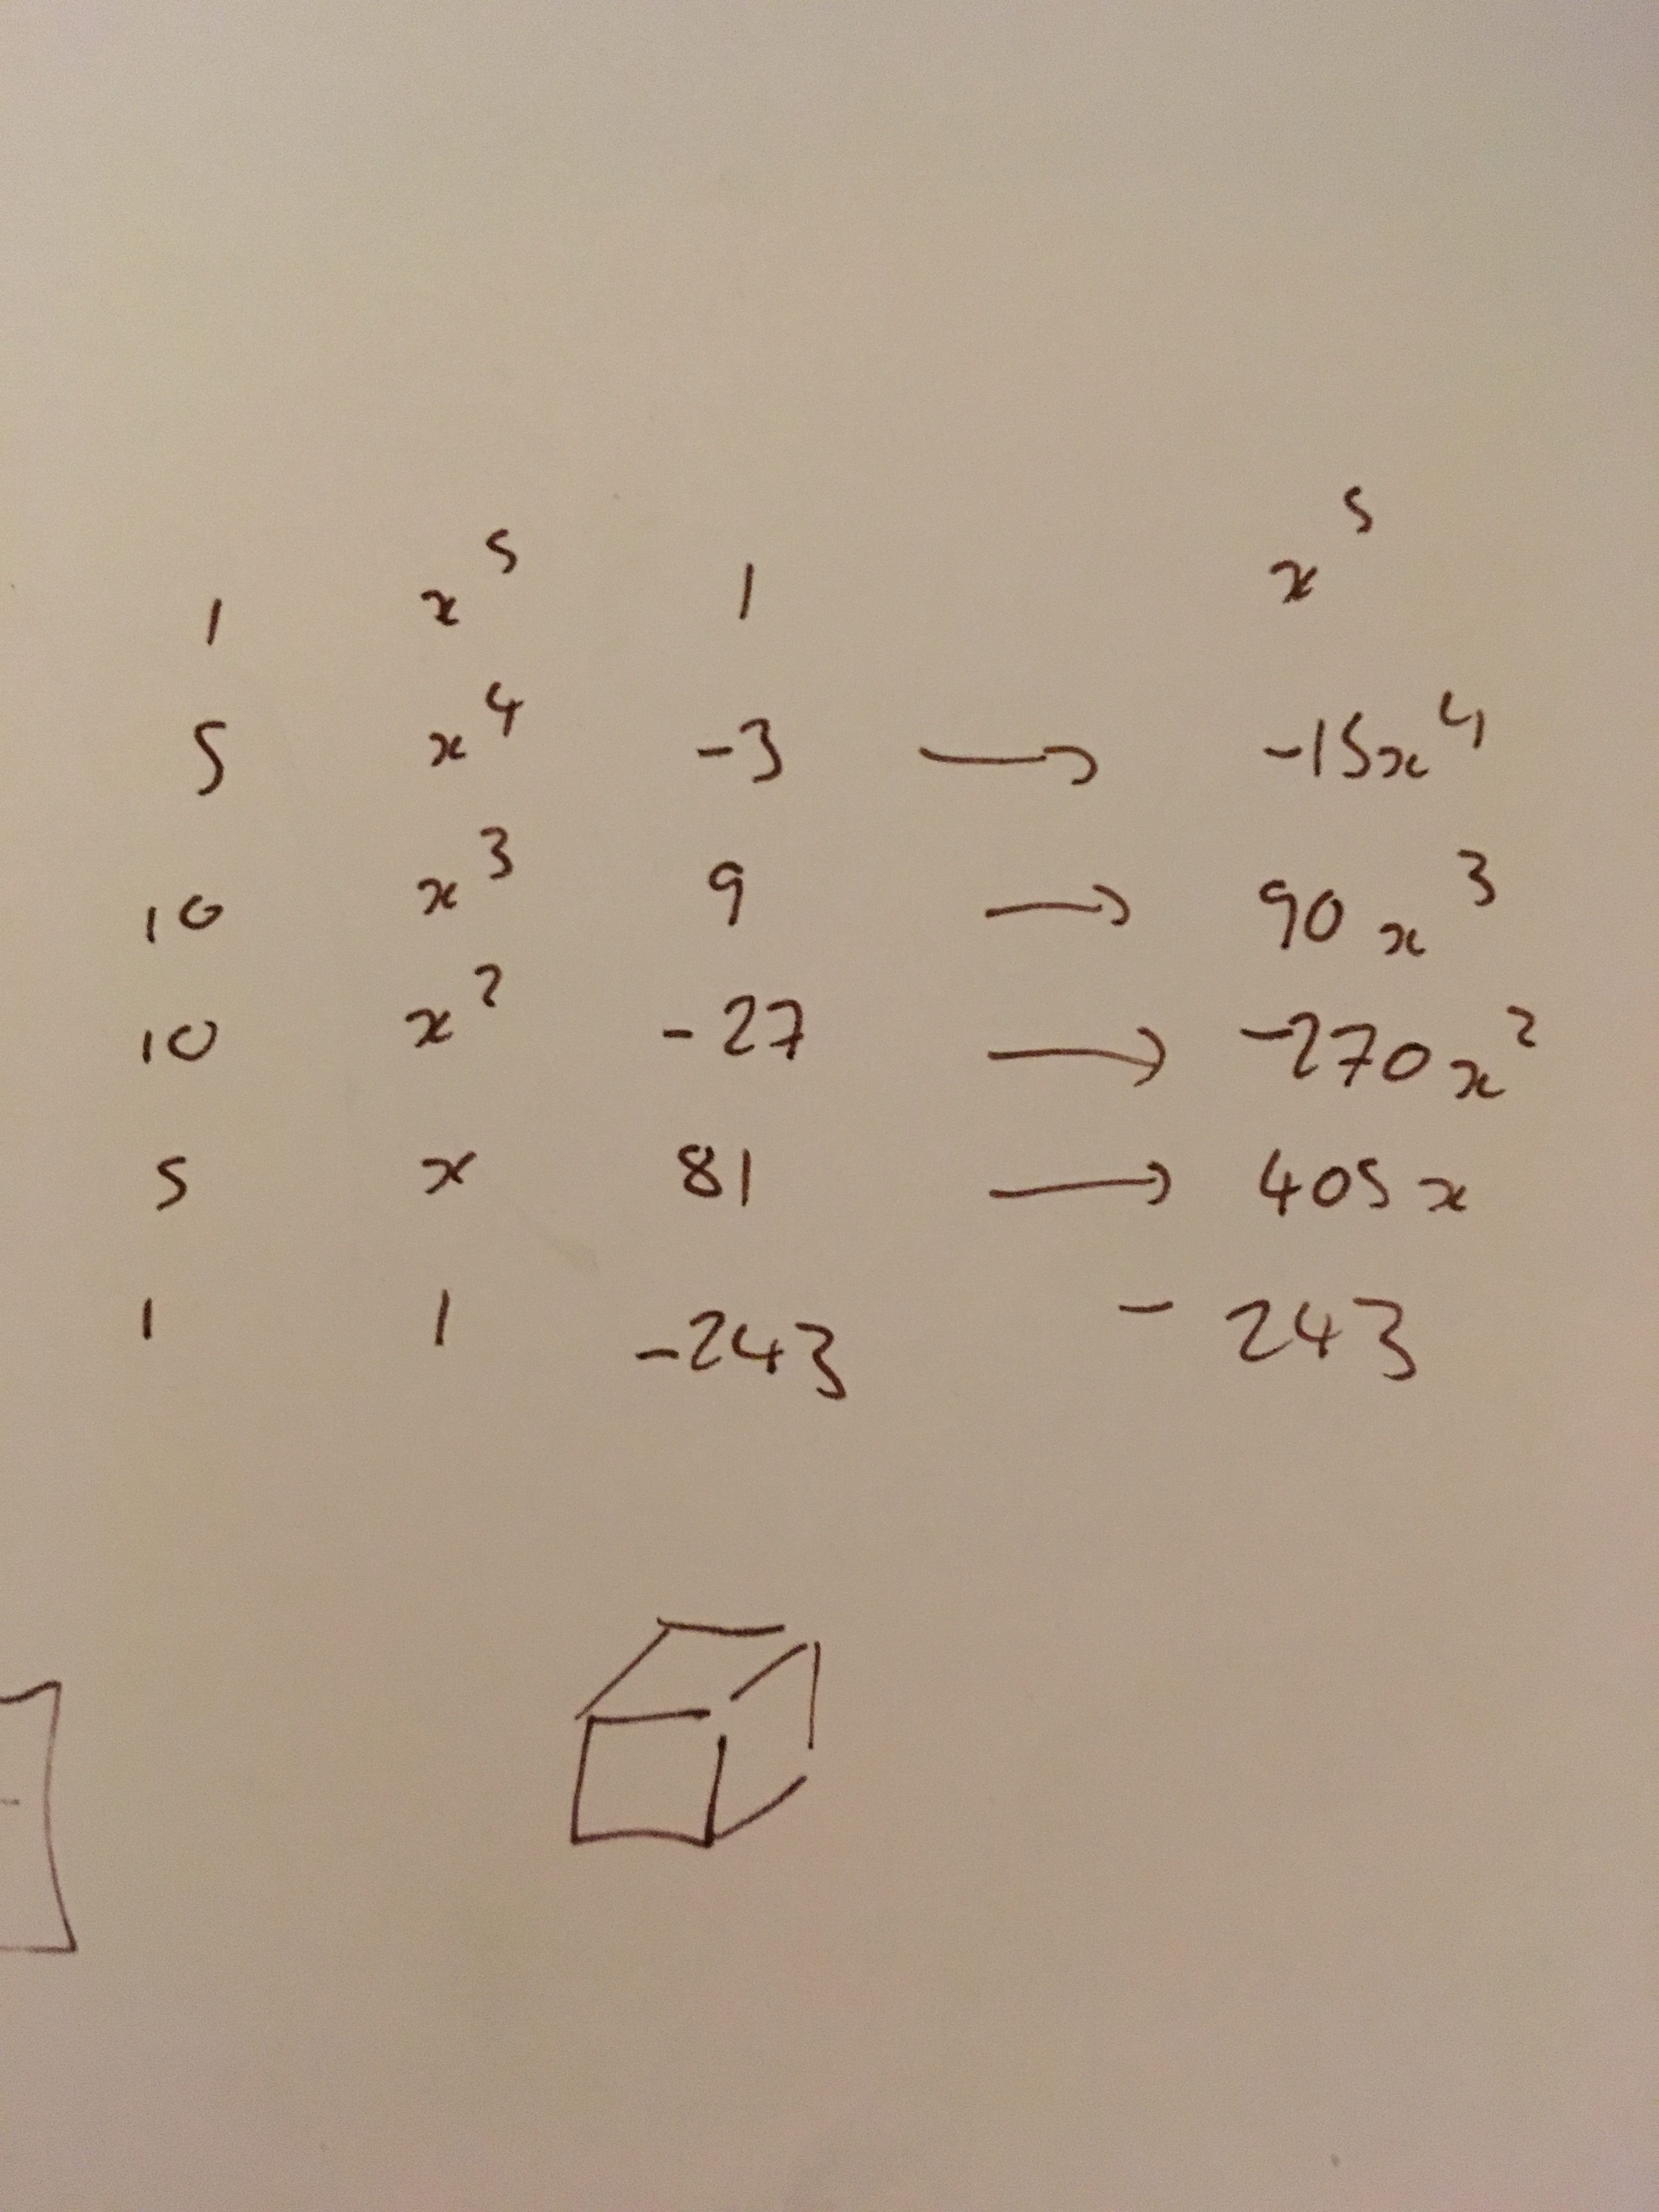 1 x⁵ 1 x⁵
5 x⁴ -3 → -15x⁴
10 x³ 9 → 90x³
10 x² -27 → -270x²
5 x 81 → 405x
1 1 -243 -243